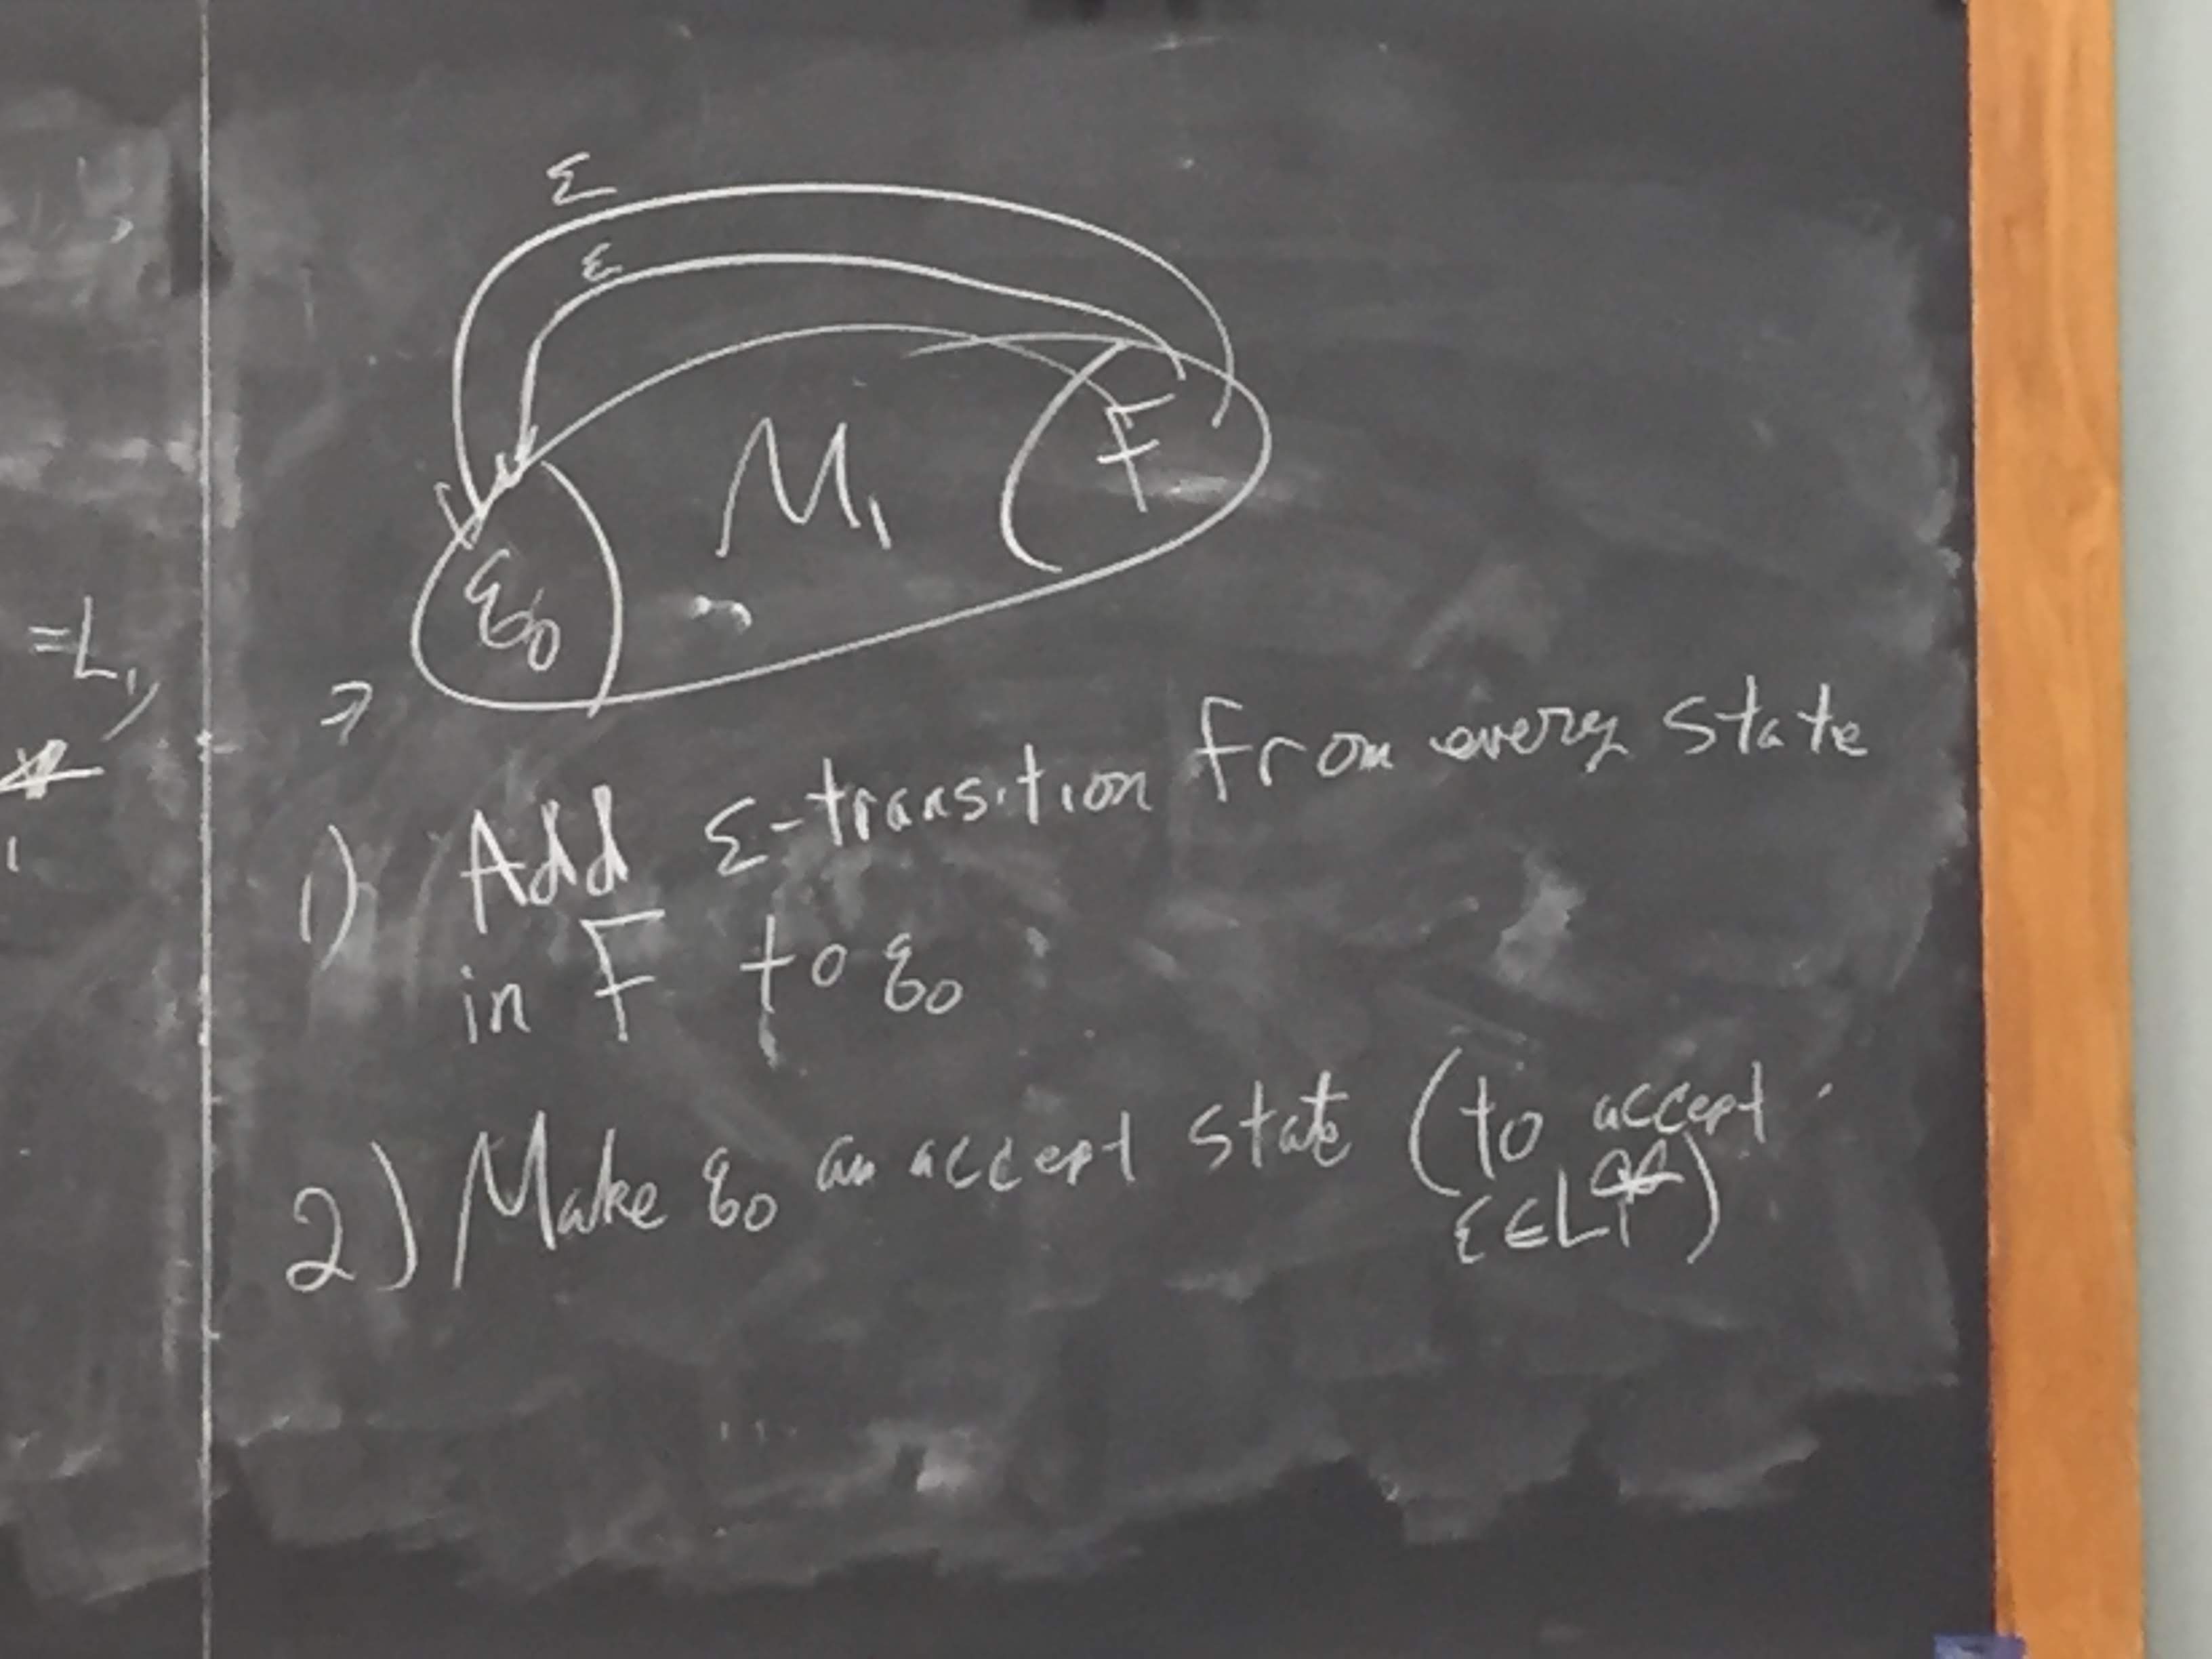 ε
ε
M₁
F
q₀
=L₁
1) Add ε-transition from every state
in F to q₀
2) Make q₀ an accept state (to accept
ε∈L₁*)